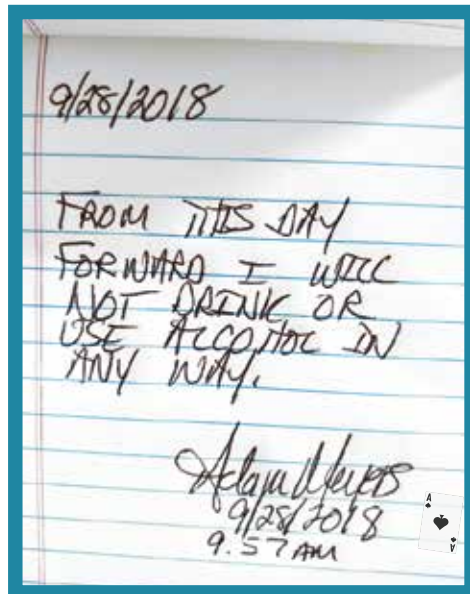 9/28/2018
FROM THIS DAY
FORWARD I WILL
NOT DRINK OR
USE ALCOHOL IN
ANY WAY.
Adam Meyers
9/28/2018
9:57 AM
A
A